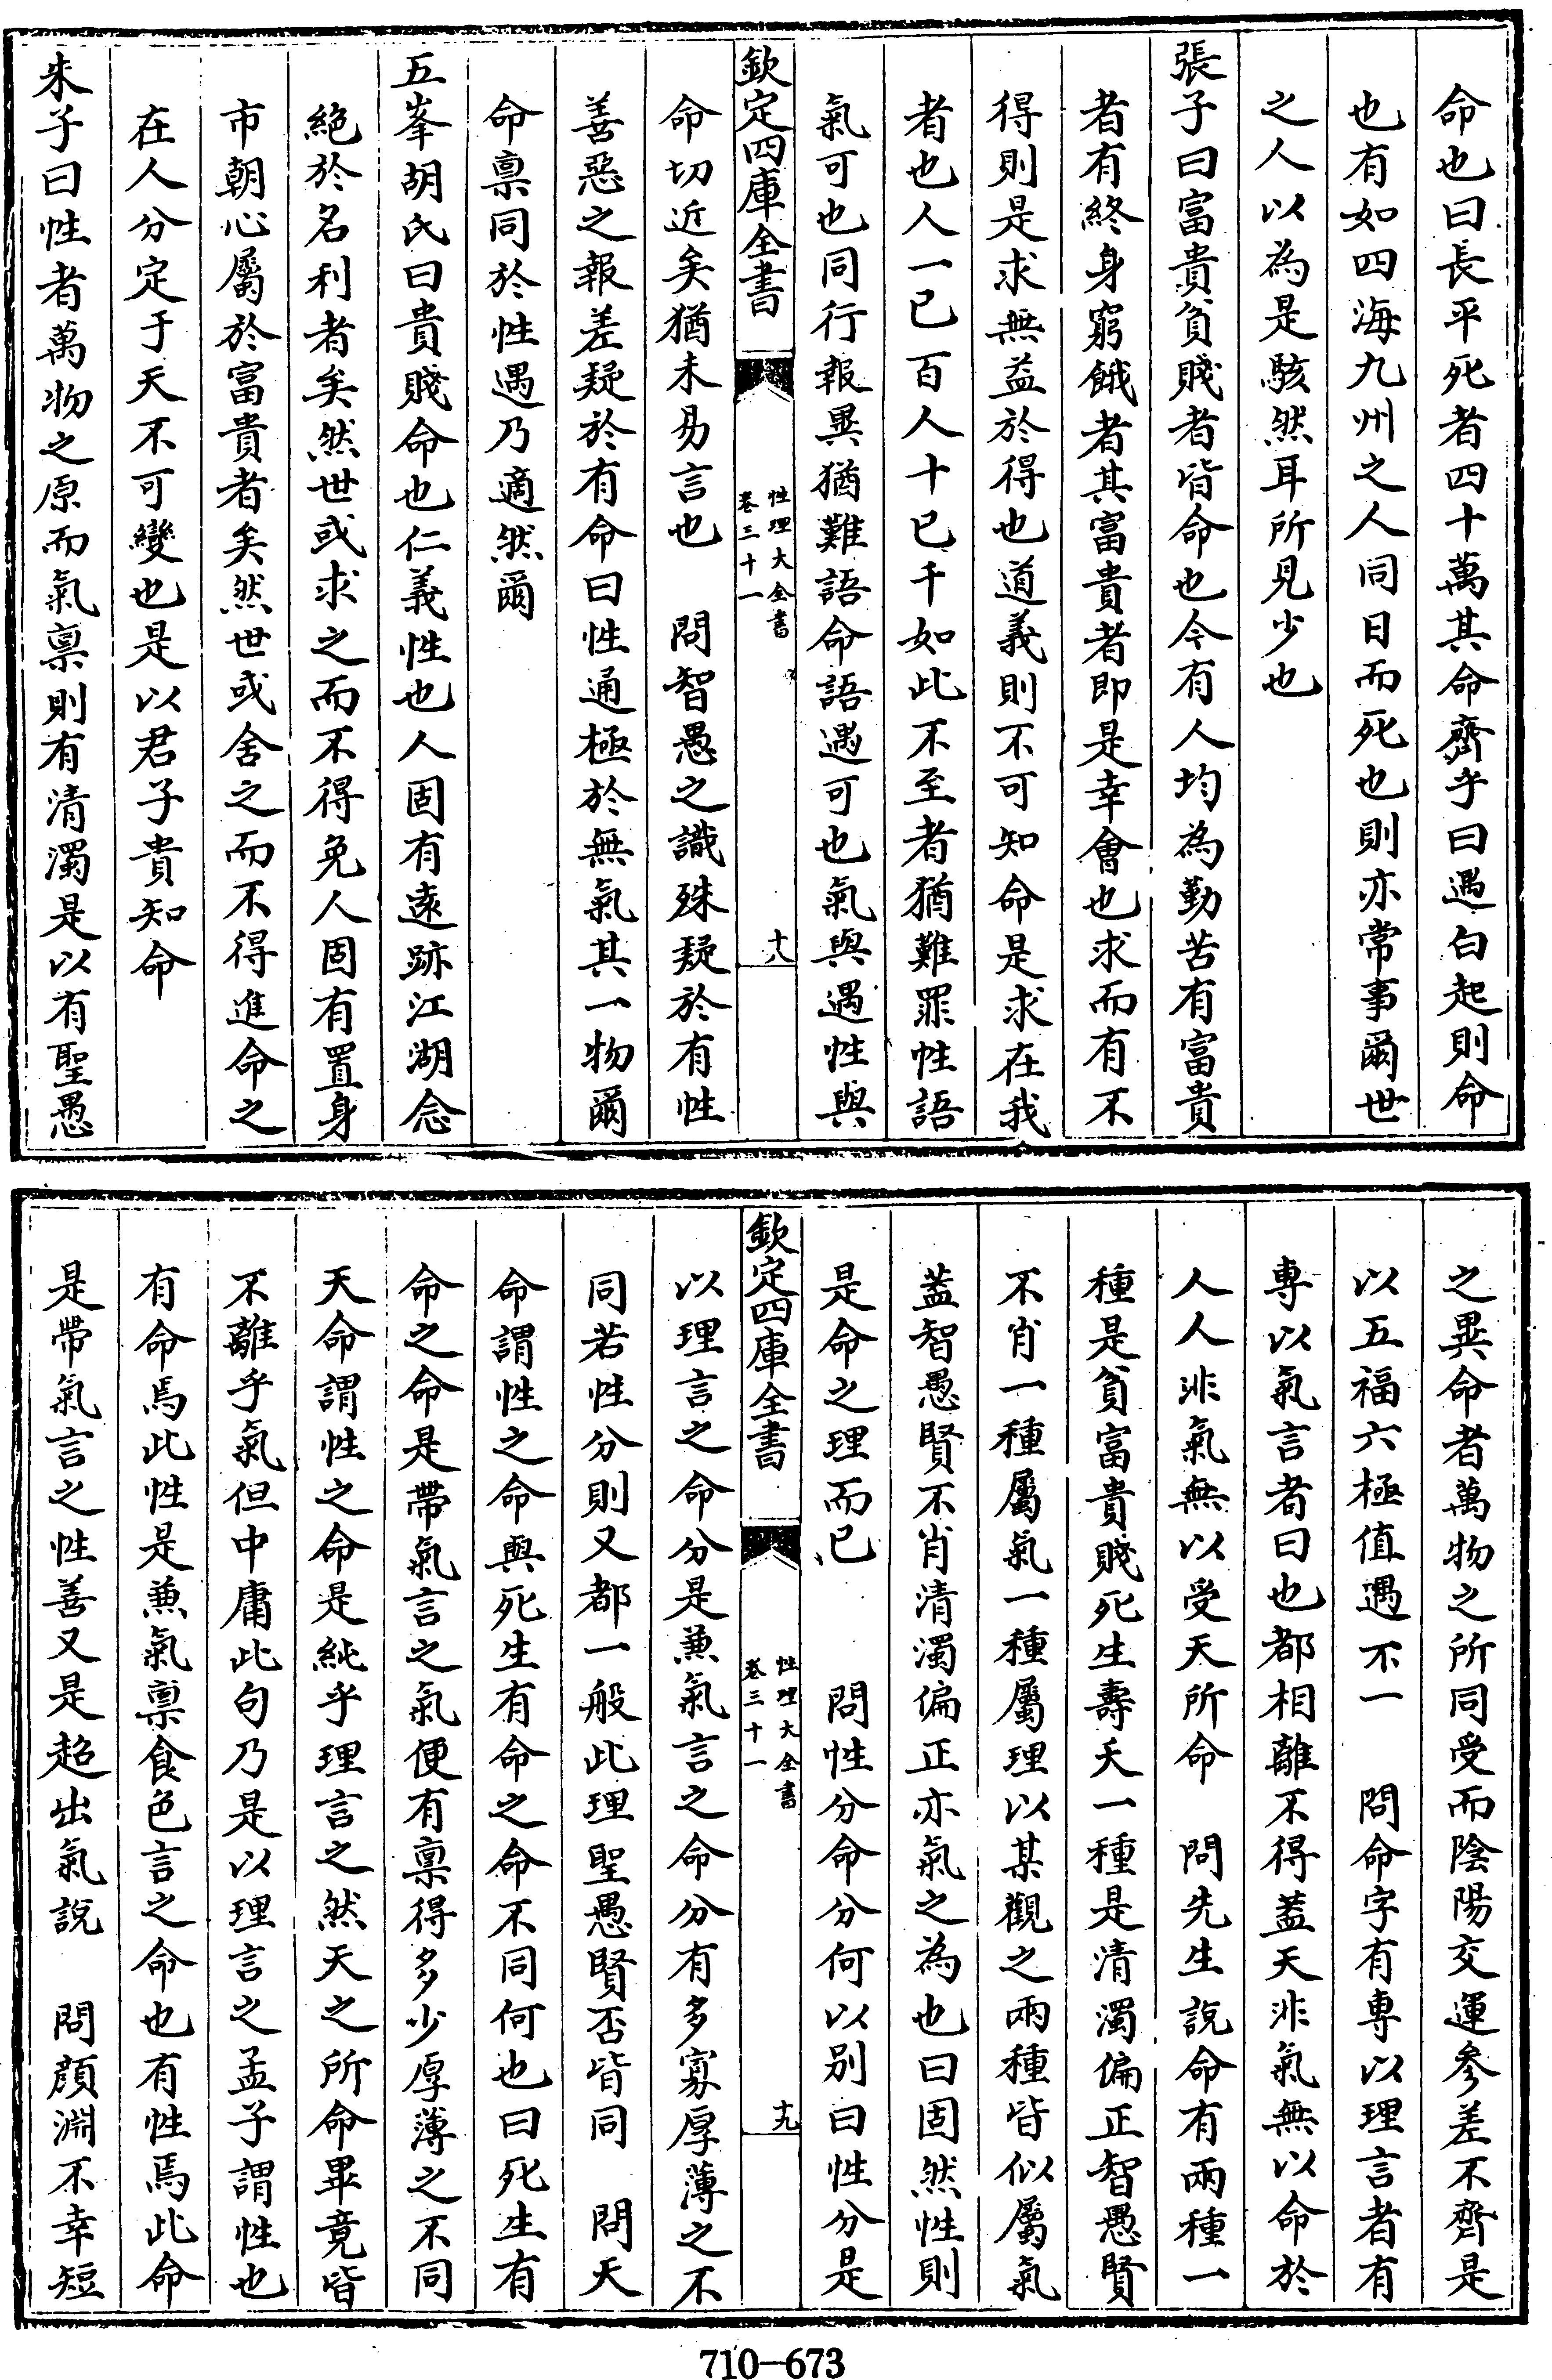 命也曰長平死者四十萬其命齊乎曰遇白起則命
也有如四海九州之人同日而死也則亦常事爾世
之人以為是駭然耳所見少也
張子曰富貴貧賤者皆命也今有人均為勤苦有富貴
者有終身窮餓者其富貴者即是幸會也求而有不
得則是求無益於得也道義則不可知命是求在我
者也人一已百人十已千如此不至者猶難罪性語
氣可也同行報異猶難語命語遇可也氣與遇性與
欽定四庫全書
性理大全書
卷三十一
十八
命切近矣猶未易言也 問智愚之識殊疑於有性
善惡之報差疑於有命曰性通極於無氣其一物爾
命稟同於性遇乃適然爾
五峯胡氏曰貴賤命也仁義性也人固有遠跡江湖念
絶於名利者矣然世或求之而不得免人固有置身
市朝心屬於富貴者矣然世或舍之而不得進命之
在人分定于天不可變也是以君子貴知命
朱子曰性者萬物之原而氣稟則有清濁是以有聖愚
之異命者萬物之所同受而陰陽交運參差不齊是
以五福六極值遇不一 問命字有專以理言者有
專以氣言者曰也都相離不得蓋天非氣無以命於
人人非氣無以受天所命 問先生說命有兩種一
種是貧富貴賤死生壽夭一種是清濁偏正智愚賢
不肖一種屬氣一種屬理以某觀之兩種皆似屬氣
蓋智愚賢不肖清濁偏正亦氣之為也曰固然性則
是命之理而已 問性分命分何以别曰性分是
欽定四庫全書
性理大全書
卷三十一
十九
以理言之命分是兼氣言之命分有多寡厚薄之不
同若性分則又都一般此理聖愚賢否皆同 問天
命謂性之命與死生有命之命不同何也曰死生有
命之命是帶氣言之氣便有稟得多少厚薄之不同
天命謂性之命是純乎理言之然天之所命畢竟皆
不離乎氣但中庸此句乃是以理言之孟子謂性也
有命焉此性是兼氣稟食色言之命也有性焉此命
是帶氣言之性善又是超出氣說 問顔淵不幸短
710-673